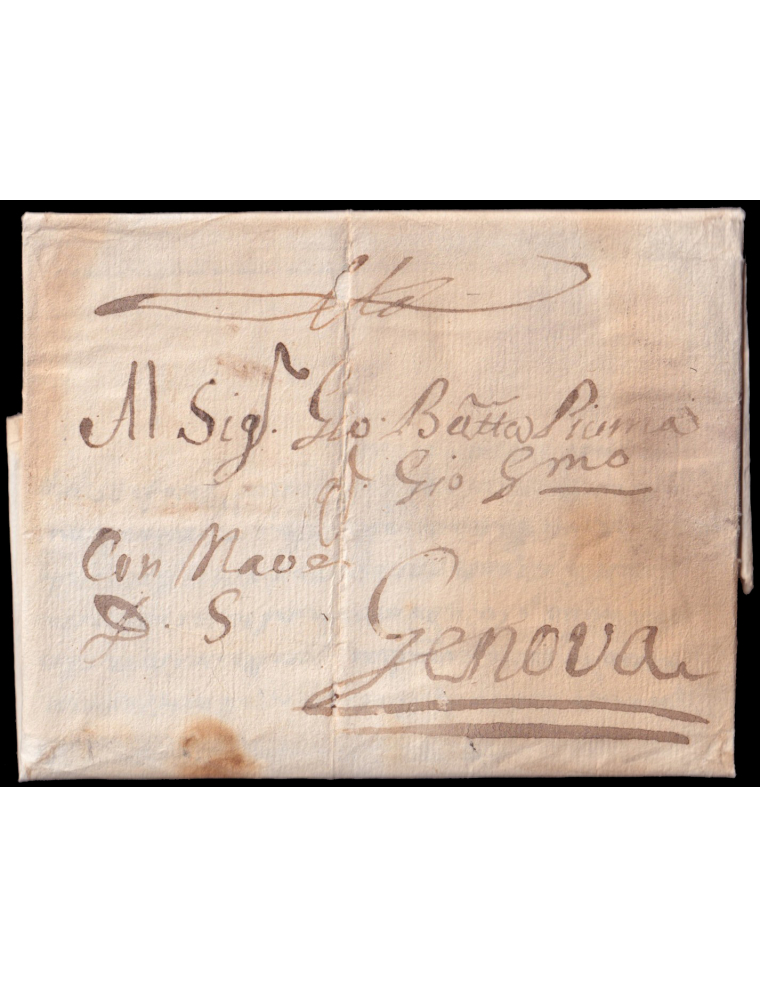 Al Sig.r Gio. Batta Piuma
q. Gio Gmo
Con Nave
D. S
Genova